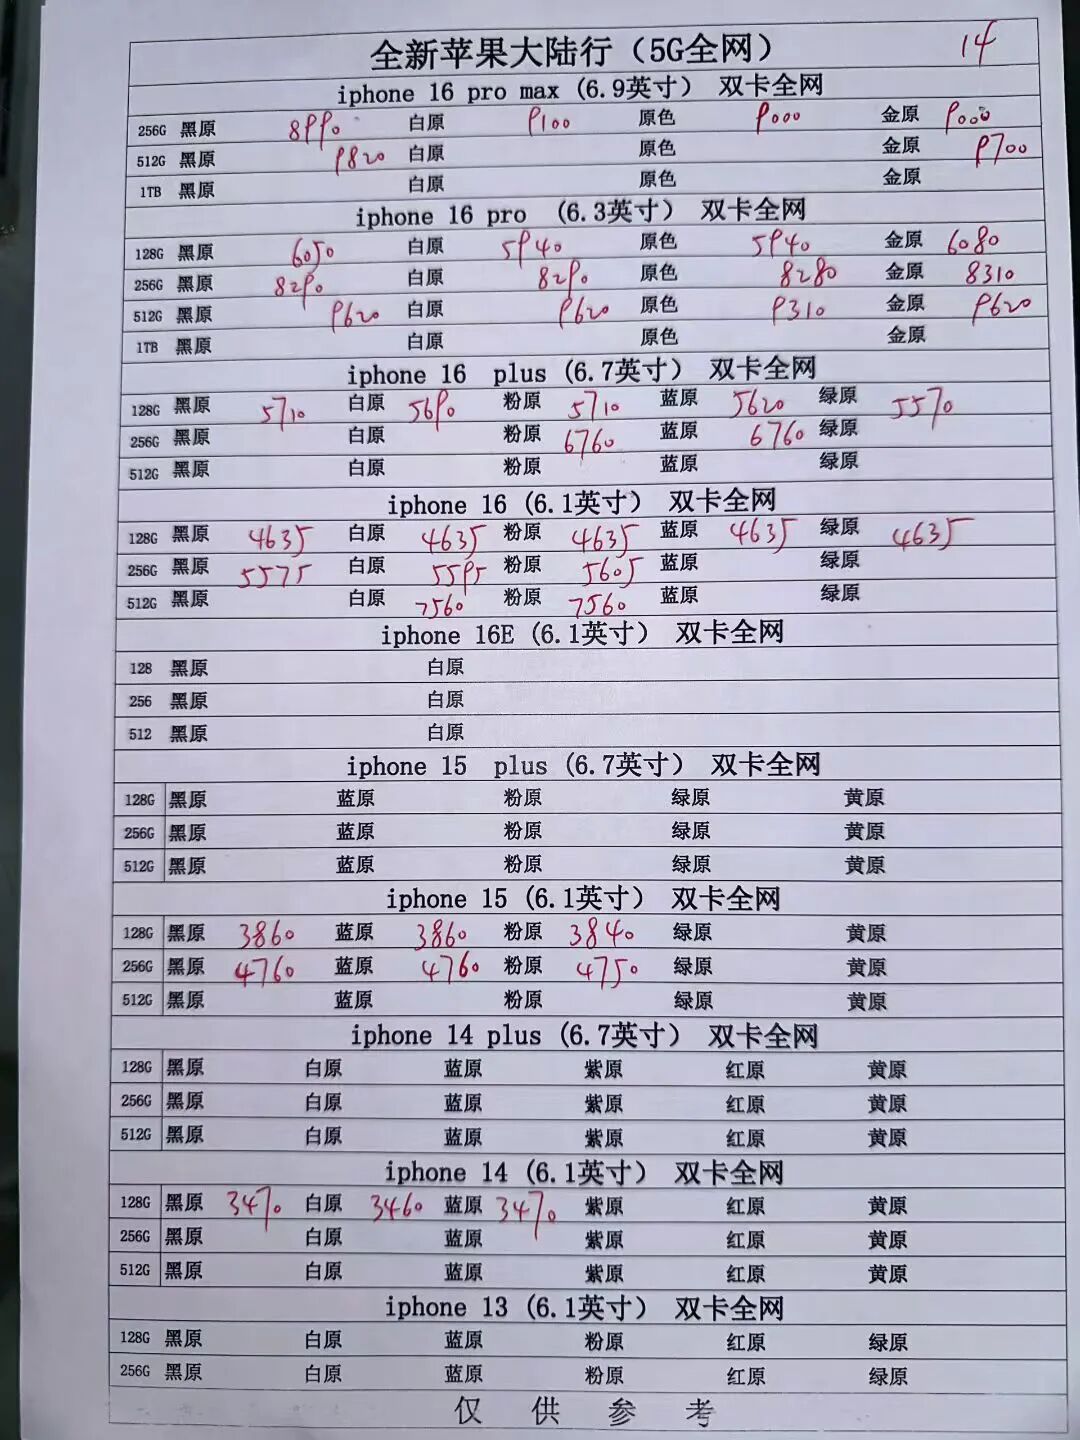 全新苹果大陆行（5G全网） 14
iphone 16 pro max (6.9英寸） 双卡全网
256G 黑原 8990 白原 9100 原色 9000 金原 9000
512G 黑原 9820 白原 原色 金原 9700
1TB 黑原 白原 原色 金原
iphone 16 pro （6.3英寸） 双卡全网
128G 黑原 6050 白原 5940 原色 5940 金原 6080
256G 黑原 8290 白原 8290 原色 8280 金原 8310
512G 黑原 9620 白原 9620 原色 9310 金原 9620
1TB 黑原 白原 原色 金原
iphone 16 plus (6.7英寸） 双卡全网
128G 黑原 5710 白原 5690 粉原 5710 蓝原 5620 绿原 5570
256G 黑原 白原 粉原 6760 蓝原 6760 绿原
512G 黑原 白原 粉原 蓝原 绿原
iphone 16 (6.1英寸） 双卡全网
128G 黑原 4635 白原 4635 粉原 4635 蓝原 4635 绿原 4635
256G 黑原 5575 白原 5595 粉原 5605 蓝原 绿原
512G 黑原 白原 7560 粉原 7560 蓝原 绿原
iphone 16E (6.1英寸） 双卡全网
128 黑原 白原
256 黑原 白原
512 黑原 白原
iphone 15 plus (6.7英寸） 双卡全网
128G 黑原 蓝原 粉原 绿原 黄原
256G 黑原 蓝原 粉原 绿原 黄原
512G 黑原 蓝原 粉原 绿原 黄原
iphone 15 (6.1英寸） 双卡全网
128G 黑原 3860 蓝原 3860 粉原 3840 绿原 黄原
256G 黑原 4760 蓝原 4760 粉原 4750 绿原 黄原
512G 黑原 蓝原 粉原 绿原 黄原
iphone 14 plus (6.7英寸） 双卡全网
128G 黑原 白原 蓝原 紫原 红原 黄原
256G 黑原 白原 蓝原 紫原 红原 黄原
512G 黑原 白原 蓝原 紫原 红原 黄原
iphone 14 (6.1英寸） 双卡全网
128G 黑原 3470 白原 3460 蓝原 3470 紫原 红原 黄原
256G 黑原 白原 蓝原 紫原 红原 黄原
512G 黑原 白原 蓝原 紫原 红原 黄原
iphone 13 (6.1英寸） 双卡全网
128G 黑原 白原 蓝原 粉原 红原 绿原
256G 黑原 白原 蓝原 粉原 红原 绿原
仅 供 参 考